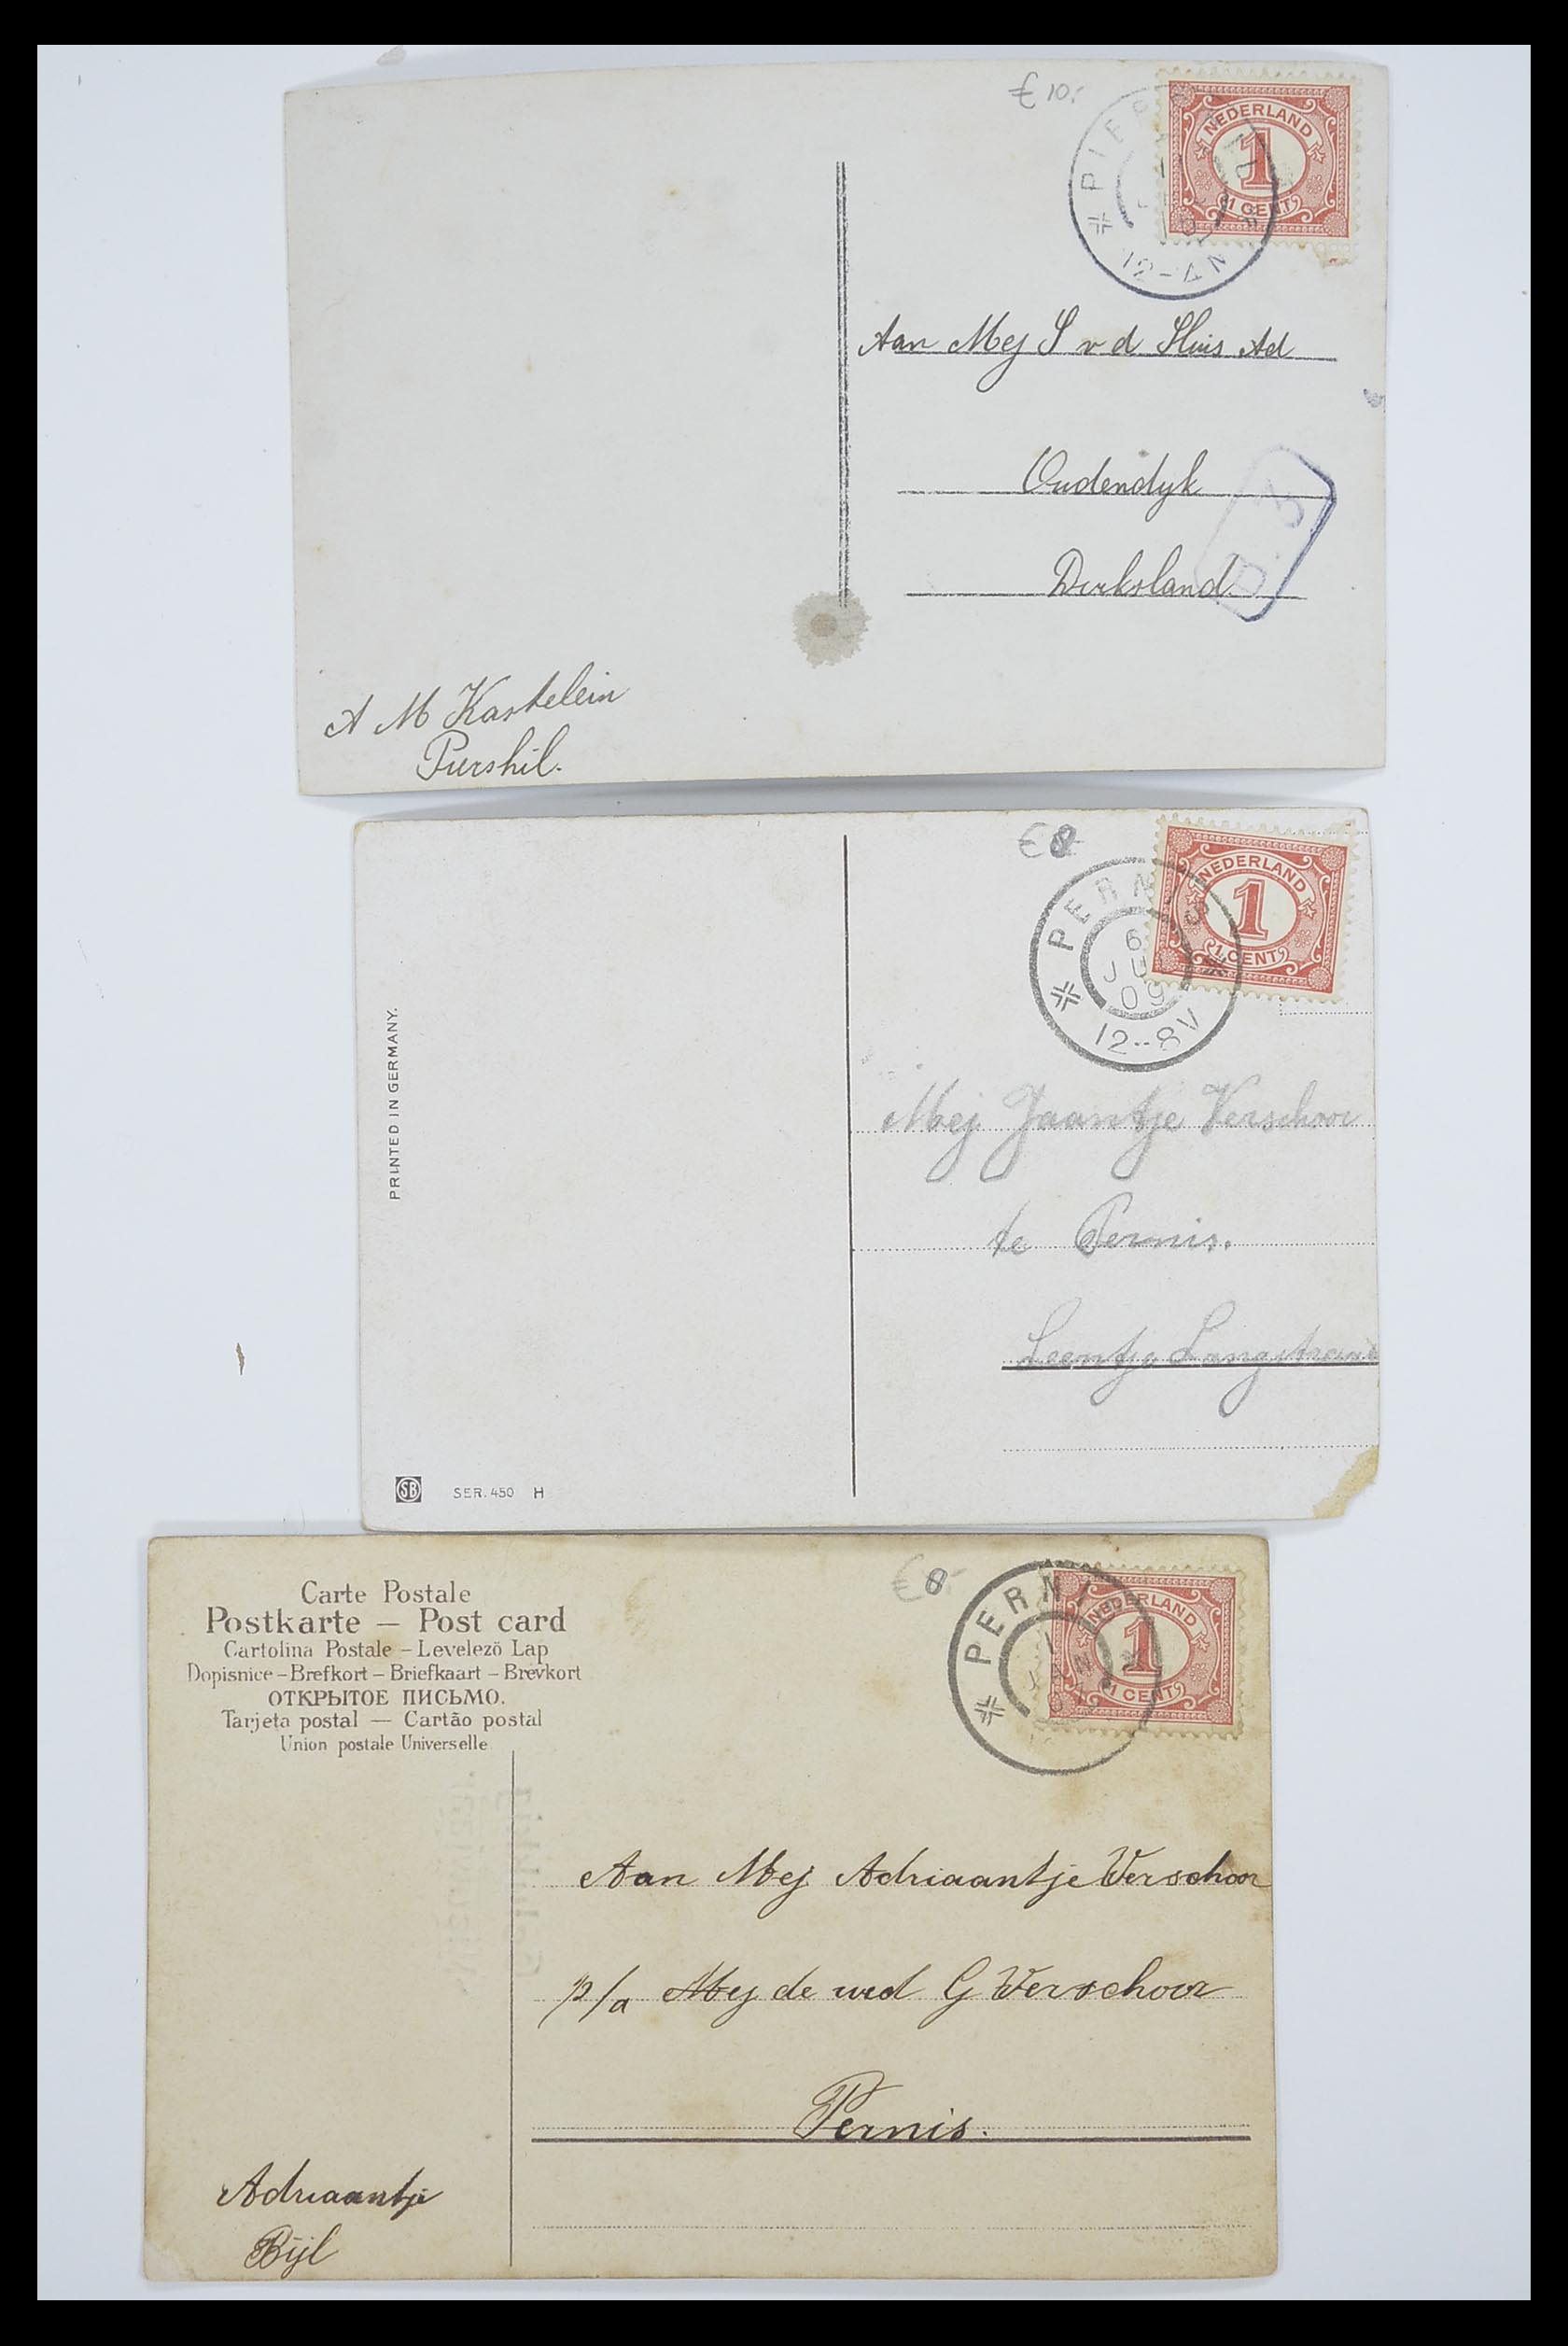 € 10,-
NEDERLAND
1
1 CENT
12-4N
Aan Mej S v d Sluis Ad
Oudendyk
Dirksland
A M Kastelein
Piershil.
€
NEDERLAND
1
1 CENT
PERNIS
6
JU
09
12--8V
PRINTED IN GERMANY.
Mej Jaantje Verschoor
te Pernis.
Leentje Langstraat
SB SER. 450 H
Carte Postale
Postkarte – Post card
Cartolina Postale – Levelező Lap
Dopisnice – Brefkort – Briefkaart – Brevkort
ОТКРЫТОЕ ПИСЬМО.
Tarjeta postal — Cartão postal
Union postale Universelle
€
NEDERLAND
1
1 CENT
PERNIS
1
JAN
Aan Mej Adriaantje Verschoor
p/a Mej de wed G Verschoor
Pernis.
Adriaantje
Bijl